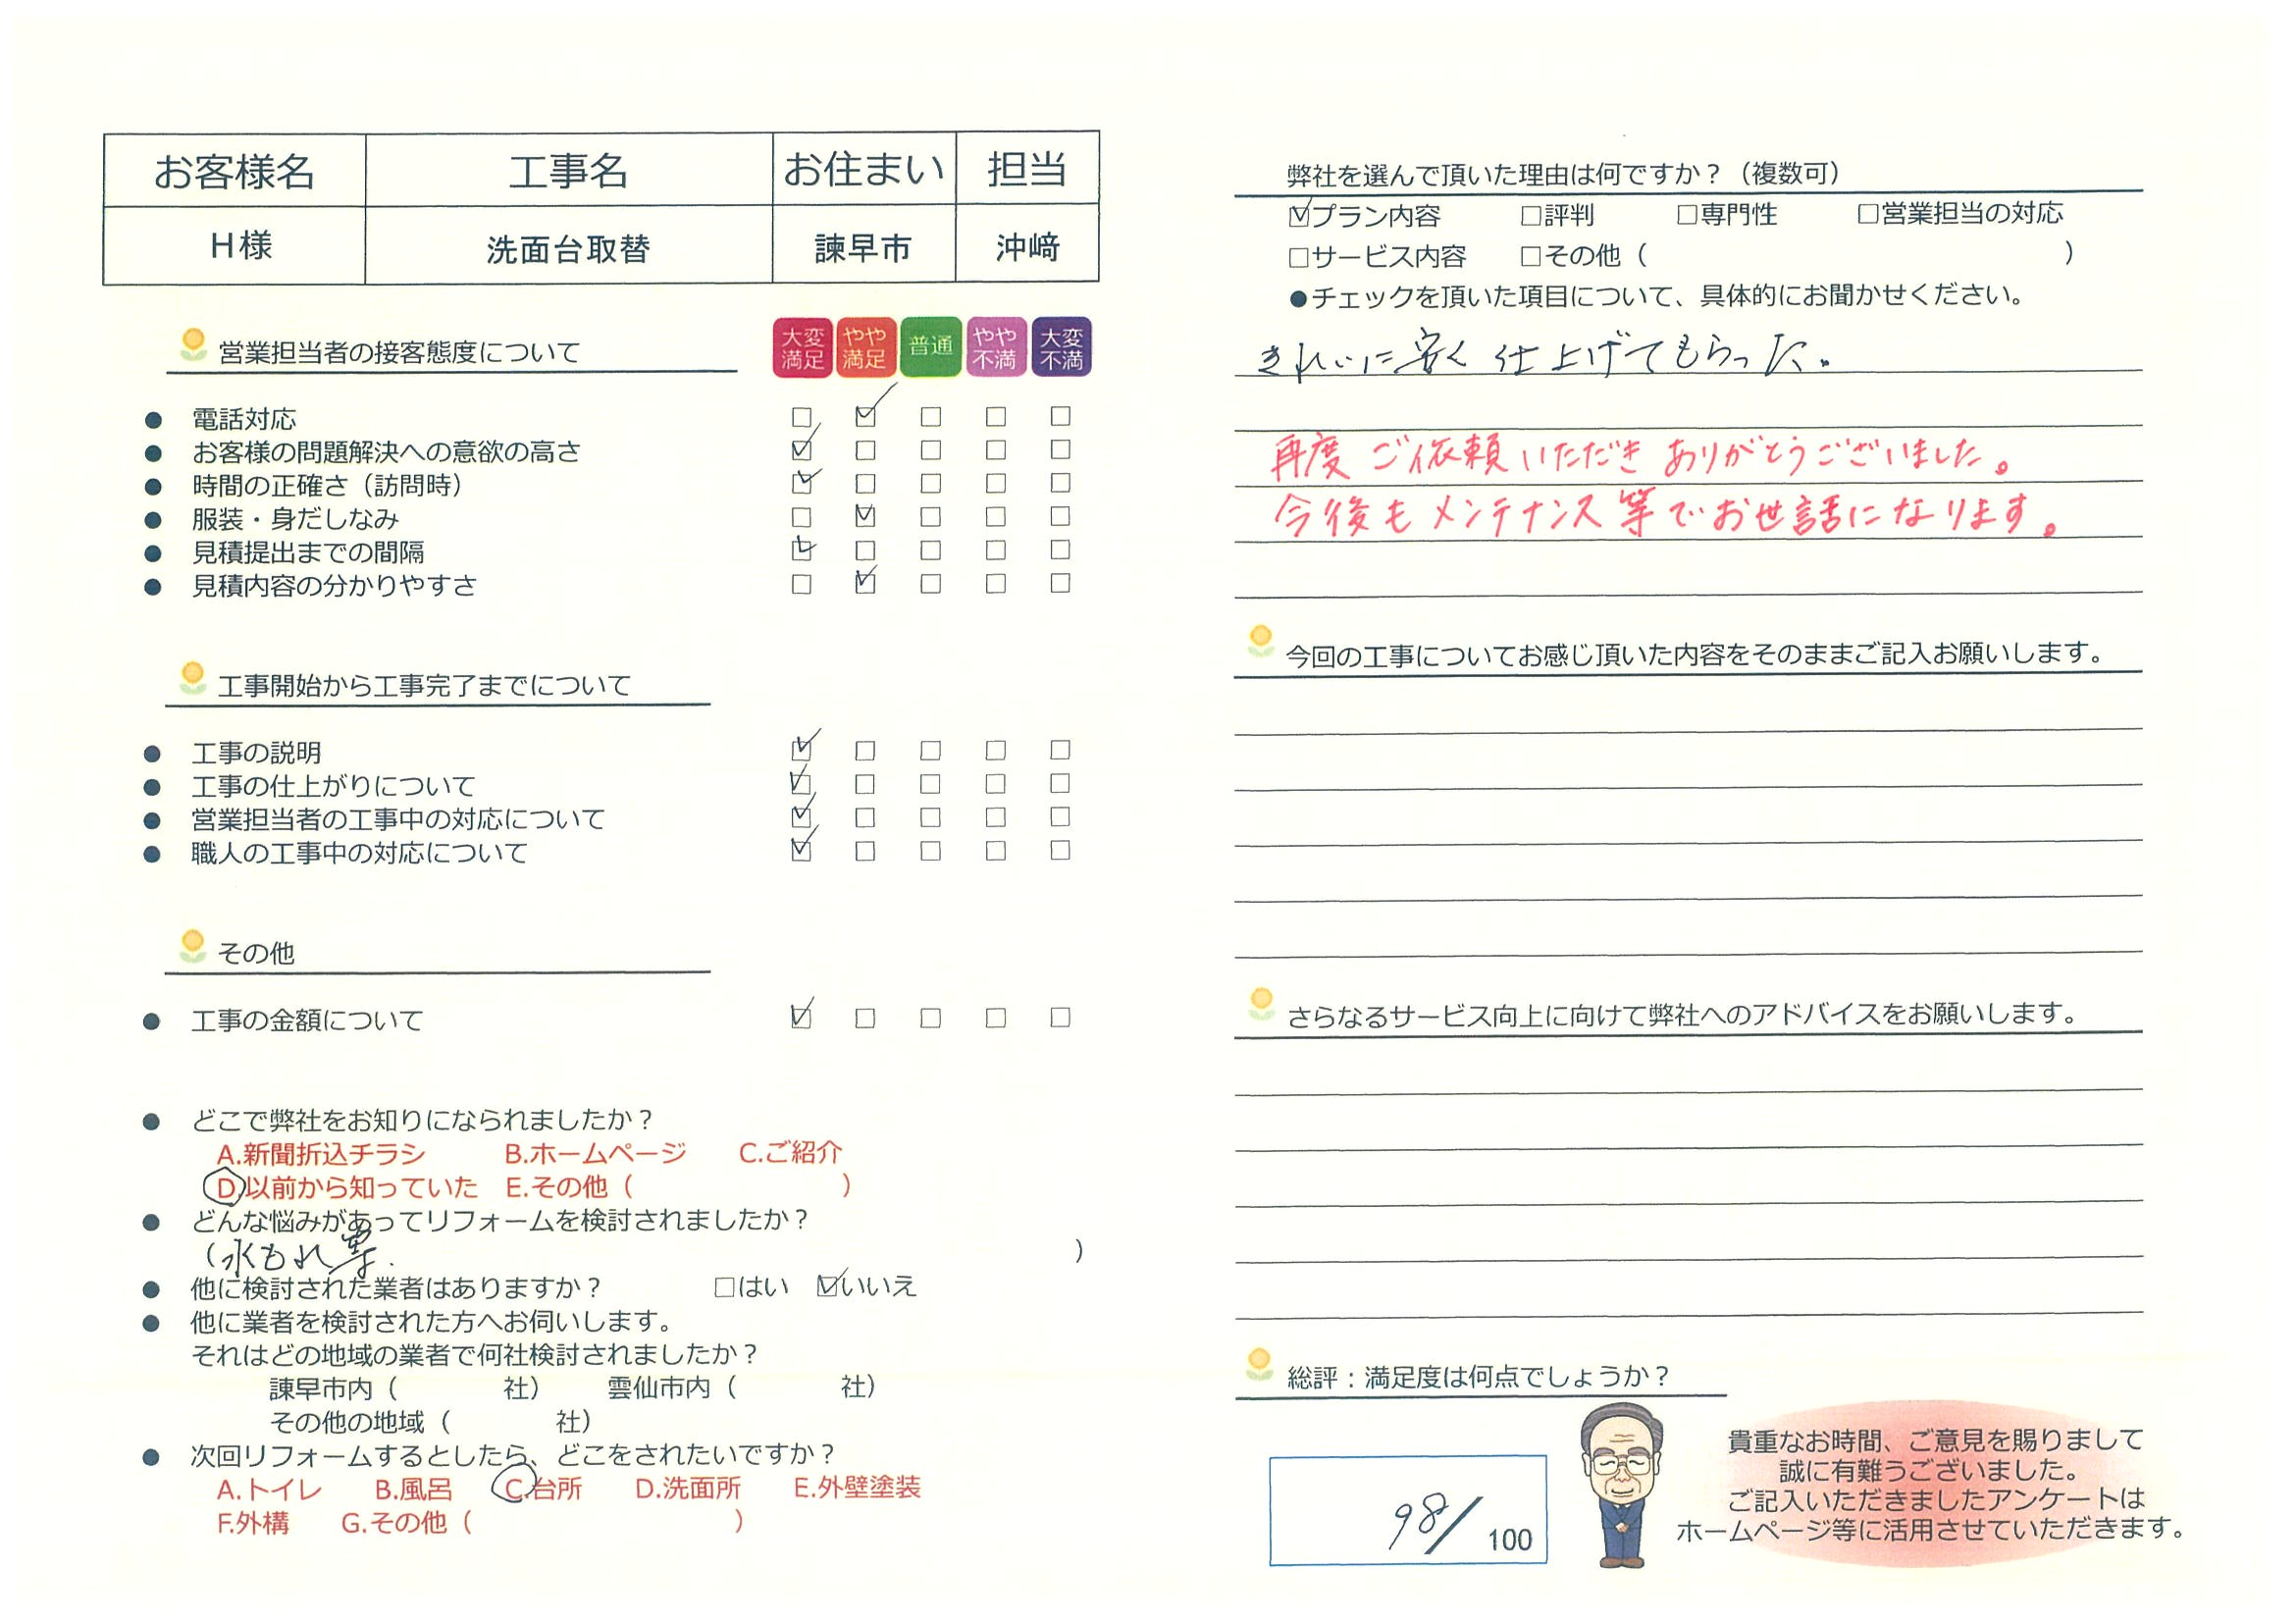 お客様名 工事名 お住まい 担当
H様 洗面台取替 諫早市 沖﨑
営業担当者の接客態度について
大変満足 やや満足 普通 やや不満 大変不満
● 電話対応 □ ☑ □ □ □
● お客様の問題解決への意欲の高さ ☑ □ □ □ □
● 時間の正確さ（訪問時） ☑ □ □ □ □
● 服装・身だしなみ □ ☑ □ □ □
● 見積提出までの間隔 ☑ □ □ □ □
● 見積内容の分かりやすさ □ ☑ □ □ □
工事開始から工事完了までについて
● 工事の説明 ☑ □ □ □ □
● 工事の仕上がりについて ☑ □ □ □ □
● 営業担当者の工事中の対応について ☑ □ □ □ □
● 職人の工事中の対応について ☑ □ □ □ □
その他
● 工事の金額について ☑ □ □ □ □
● どこで弊社をお知りになられましたか？
A.新聞折込チラシ B.ホームページ C.ご紹介
D.以前から知っていた E.その他（ ）
● どんな悩みがあってリフォームを検討されましたか？
（水もれ等. ）
● 他に検討された業者はありますか？ □はい ☑いいえ
● 他に業者を検討された方へお伺いします。
それはどの地域の業者で何社検討されましたか？
諫早市内（ 社） 雲仙市内（ 社）
その他の地域（ 社）
● 次回リフォームするとしたら、どこをされたいですか？
A.トイレ B.風呂 C.台所 D.洗面所 E.外壁塗装
F.外構 G.その他（ ）
弊社を選んで頂いた理由は何ですか？（複数可）
☑プラン内容 □評判 □専門性 □営業担当の対応
□サービス内容 □その他（ ）
●チェックを頂いた項目について、具体的にお聞かせください。
きれいに安く仕上げてもらった。
再度ご依頼いただきありがとうございました。
今後もメンテナンス等でお世話になります。
今回の工事についてお感じ頂いた内容をそのままご記入お願いします。
さらなるサービス向上に向けて弊社へのアドバイスをお願いします。
総評：満足度は何点でしょうか？
98/100
貴重なお時間、ご意見を賜りまして
誠に有難うございました。
ご記入いただきましたアンケートは
ホームページ等に活用させていただきます。